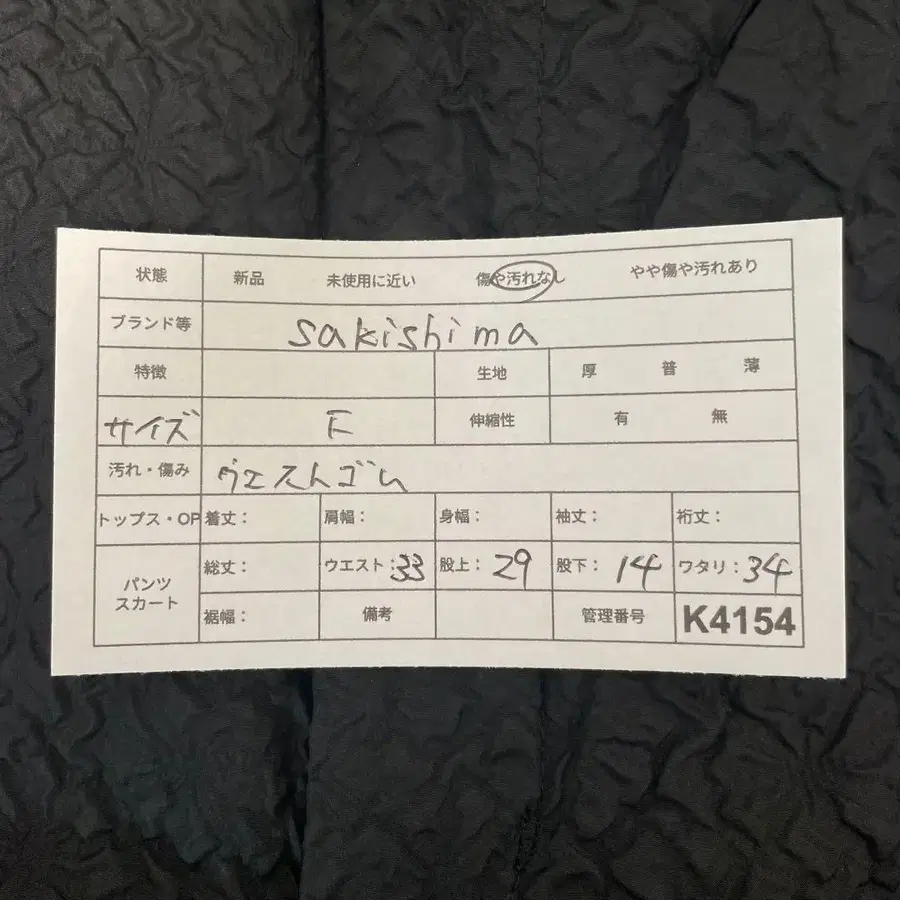 状態 新品 未使用に近い 傷や汚れなし やや傷や汚れあり
ブランド等 sakishima
特徴 生地 厚 普 薄
サイズ F 伸縮性 有 無
汚れ・傷み ウエストゴム
トップス・OP 着丈： 肩幅： 身幅： 袖丈： 裄丈：
パンツ スカート
総丈： ウエスト：33 股上：29 股下：14 ワタリ：34
裾幅： 備考 管理番号 K4154